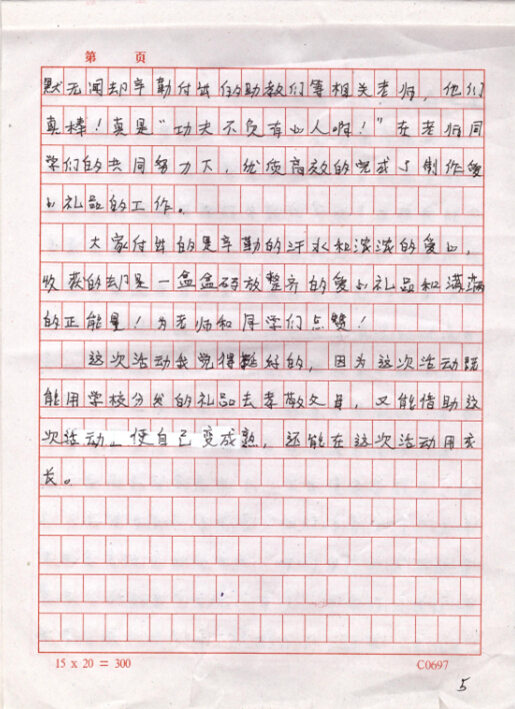 第 页
默无闻却辛勤付出的助教们等相关老师，他们
真棒！真是“功夫不负有心人啊！”在老师同
学们的共同努力下，优质高效的完成了制作爱
心礼品的工作。
大家付出的是辛勤的汗水和浓浓的爱心，
收获的却是一盒盒码放整齐的爱心礼品和满满
的正能量！为老师和同学们点赞！
这次活动我觉得挺好的，因为这次活动既
能用学校分发的礼品去孝敬父母，又能借助这
次活动，使自己变成熟，还能在这次活动用交
长。
15 x 20 = 300
C0697
5